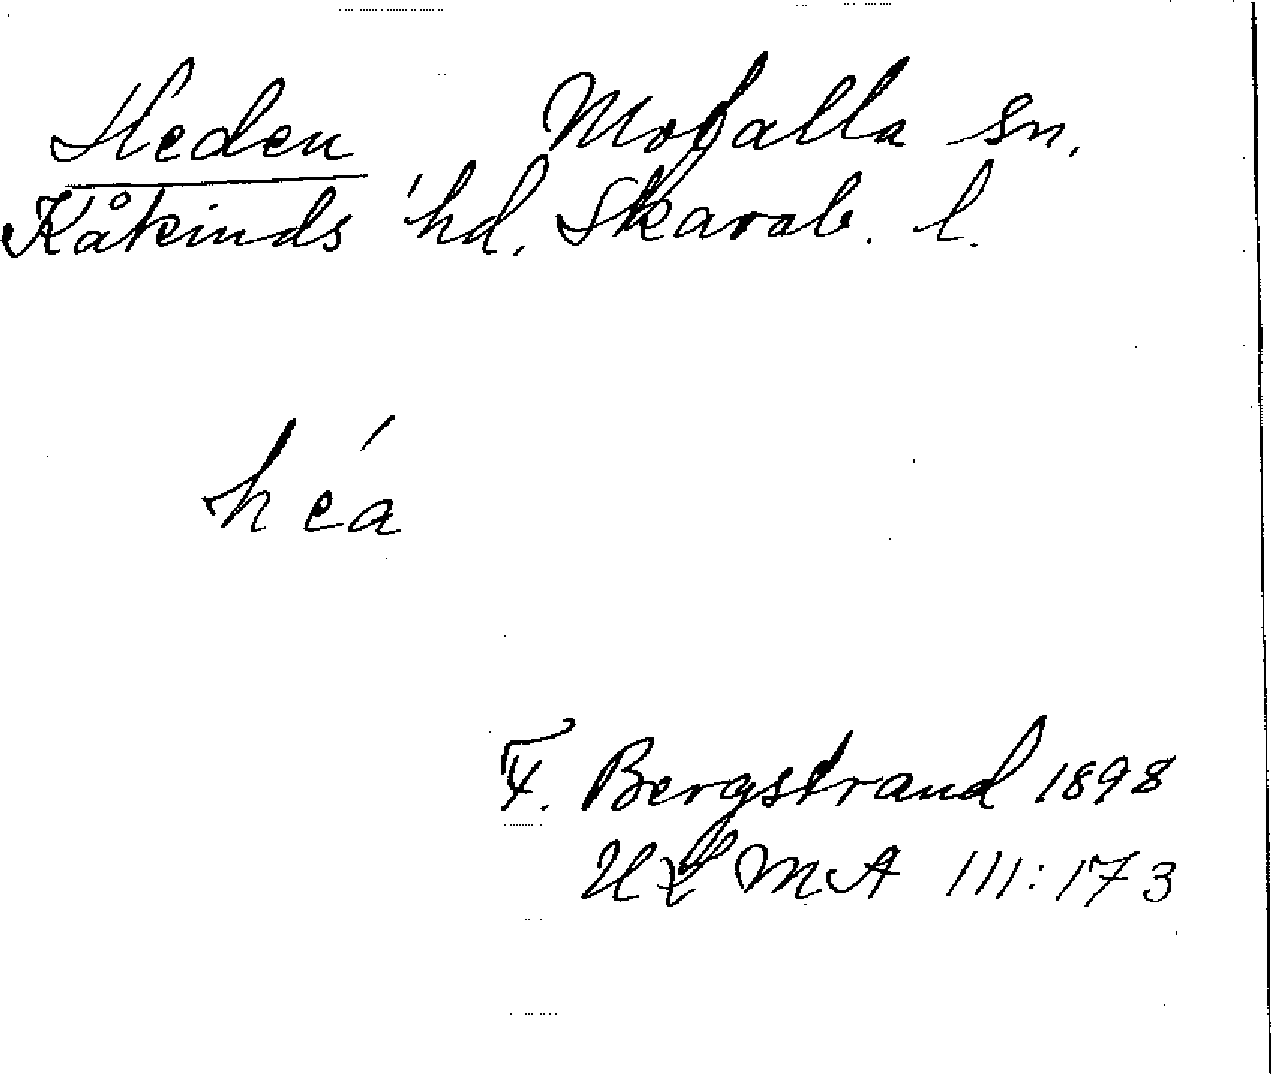 Heden Mofalla sn.
Kåkinds hd. Skarab. l.
heá
F. Bergstrand 1898
ULMA 111:173